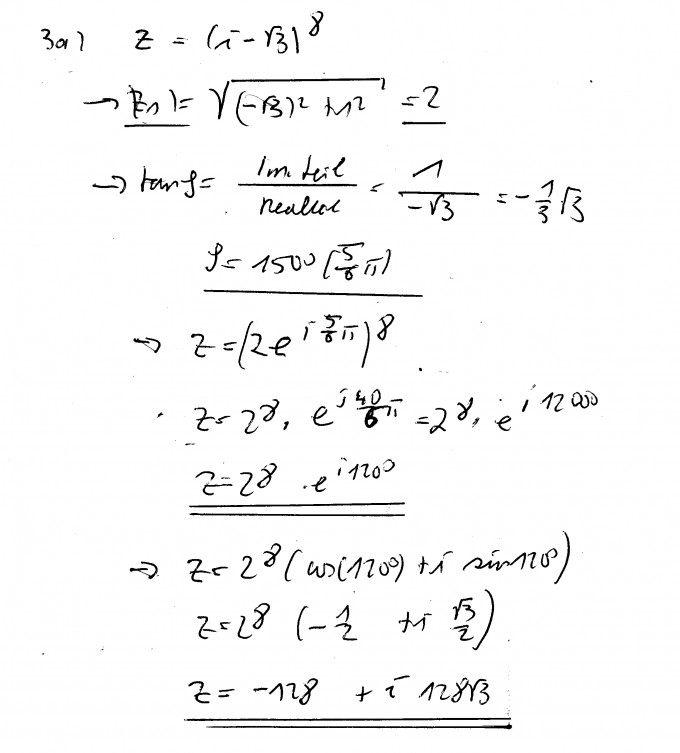 3a) z = (i - √3)^8
→ |z_1| = √((-√3)² + 1²) = 2
→ tan φ = Im. teil / Realteil = 1 / -√3 = -1/3 √3
φ = 150° (5/6 π)
→ z = (2e^{i 5/6 π})^8
z = 2^8 · e^{i 40/6 π} = 2^8 · e^{i 1200°}
z = 2^8 · e^{i 120°}
→ z = 2^8 (cos(120°) + i sin 120°)
z = 2^8 (-1/2 + i √3/2)
z = -128 + i 128√3